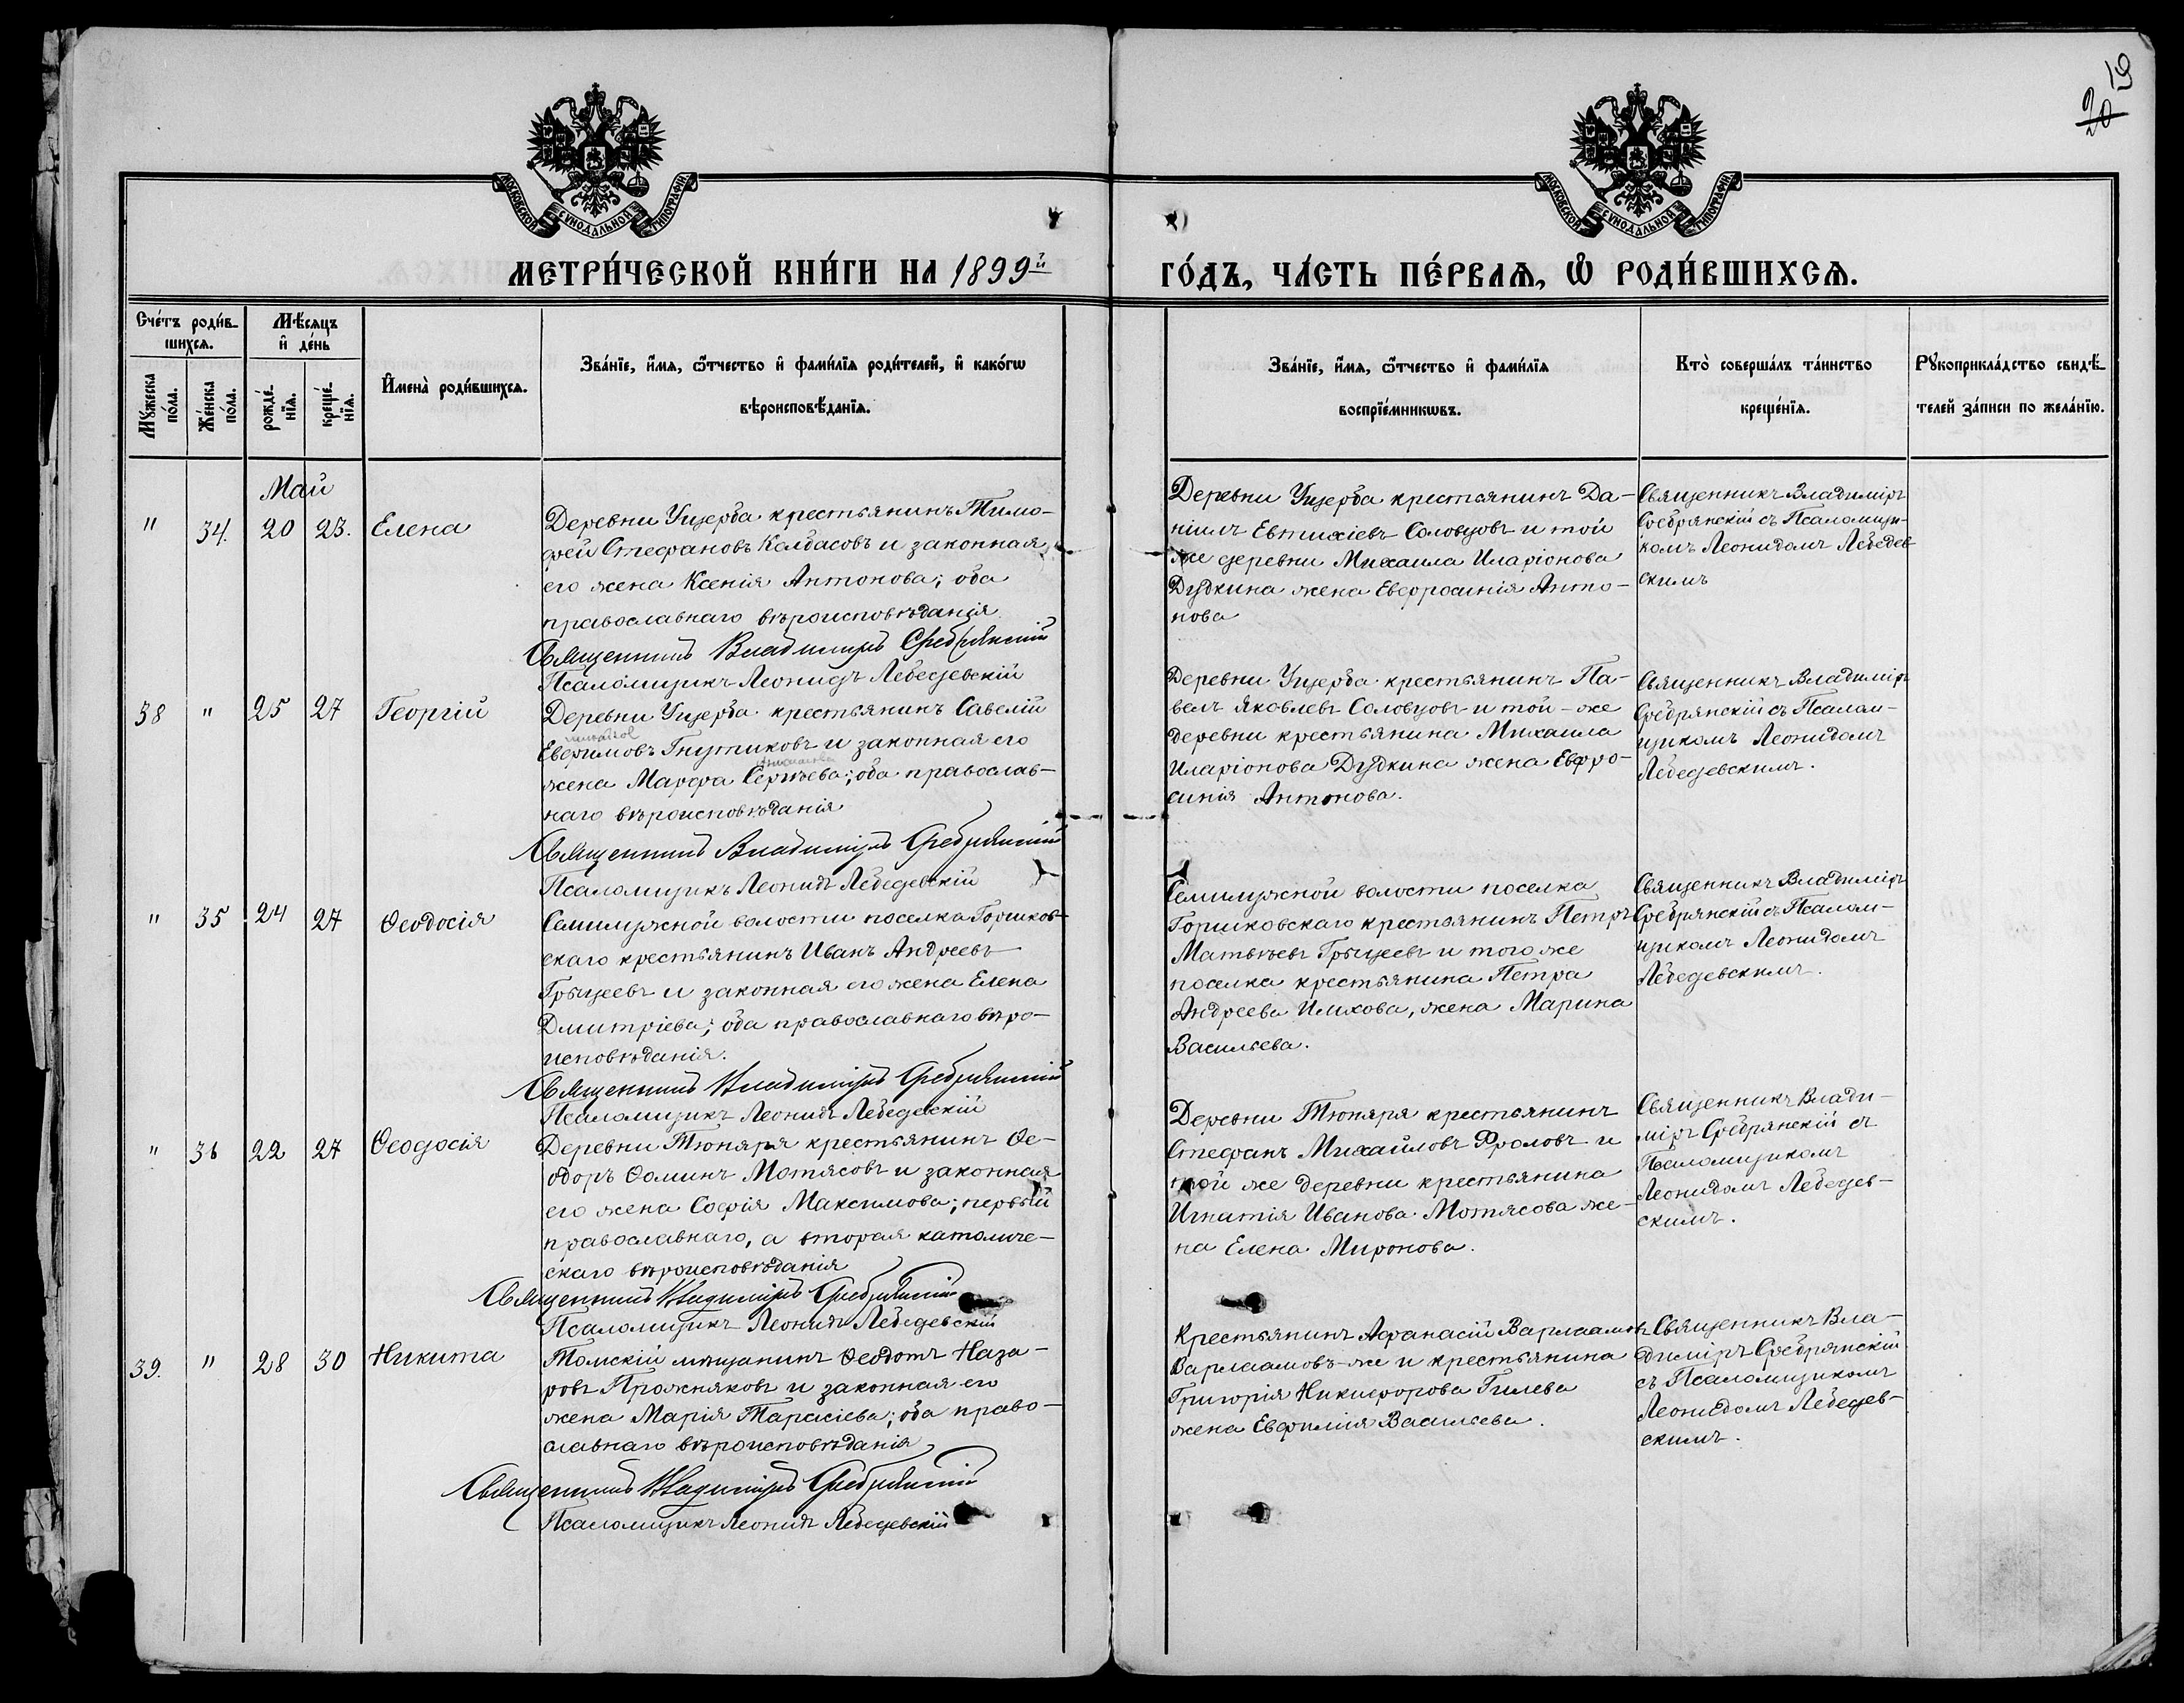 19
20
МОСКОВСКОЙ СѴНОДАЛЬНОЙ ТИПОГРАФІИ
МОСКОВСКОЙ СѴНОДАЛЬНОЙ ТИПОГРАФІИ
МЕТРИ́ЧЕСКОЙ КНИ́ГИ НА 1899й
ГО́ДЪ, ЧА́СТЬ ПЕ́РВАѦ, Ѡ РОДИ́ВШИХСѦ.
Сче́тъ роди́в-
шихсѧ.
Мꙋ́жеска по́ла.
Же́нска по́ла.
Мѣ́сѧцъ
и҆ де́нь
рожде́-нїѧ.
креще́-нїѧ.
И҆мена̀ роди́вшихсѧ.
Зва́нїе, и҆́мѧ, ѻ҆́тчество и҆ фами́лїѧ роди́телей, и҆ како́гѡ
вѣроисповѣ́данїѧ.
Зва́нїе, и҆́мѧ, ѻ҆́тчество и҆ фами́лїѧ
воспрїе́мникѡвъ.
Кто̀ соверша́лъ та́инство
креще́нїѧ.
Рꙋкоприкла́дство свидѣ́-
телей за́писи по жела́нїю.
Май
" 34. 20 23. Елена
Деревни Ущерба крестьянинъ Тимо-
фей Стефановъ Колбасовъ и законная
его жена Ксенія Антонова; оба
православнаго вѣроисповѣданія
Священникъ Владиміръ Сребрянскій
Псаломщикъ Леонидъ Лебедевскій
Деревни Ущерба крестьянинъ Да-
ніилъ Евтихіевъ Соловцовъ и той
же деревни Михаила Иларіонова
Дудкина жена Евфросинія Анто-
нова
Священникъ Владиміръ
Сребрянскій съ Псаломщи-
комъ Леонидомъ Лебедев
скимъ
38 " 25 27 Георгій
Деревни Ущерба крестьянинъ Савелій
Евфимовъ Гнутиковъ и законная его
жена Марфа Сергѣева; оба православ-
наго вѣроисповѣданія
Священникъ Владиміръ Сребрянскій
Псаломщикъ Леонидъ Лебедевскій
Деревни Ущерба крестьянинъ Па-
велъ Яковлевъ Соловцовъ и той-же
деревни крестьянина Михаила
Иларіонова Дудкина жена Евфро-
синія Антонова.
Священникъ Владиміръ
Сребрянскій съ Псалом-
щикомъ Леонидомъ
Лебедевскимъ.
" 35 24 27 Ѳеодосія
Семилужной волости поселка Горшков-
скаго крестьянинъ Иванъ Андреевъ
Грыцеевъ и законная его жена Елена
Дмитріева; оба православнаго вѣро-
исповѣданія.
Священникъ Владиміръ Сребрянскій
Псаломщикъ Леонидъ Лебедевскій
Семилужной волости поселка
Горшковскаго крестьянинъ Петръ
Матвѣевъ Грыцеевъ и того же
поселка крестьянина Петра
Андреева Илихова, жена Марина
Васильева.
Священникъ Владиміръ
Сребрянскій съ Псалом-
щикомъ Леонидомъ
Лебедевскимъ.
" 36 22 27 Ѳеодосія
Деревни Тюняря крестьянинъ Ѳе-
одоръ Ѳоминъ Мотясовъ и законная
его жена Софія Максимова; первый
православнаго, а вторая католиче-
скаго вѣроисповѣданія
Священникъ Владиміръ Сребрянскій
Псаломщикъ Леонидъ Лебедевскій
Деревни Тюняря крестьянинъ
Стефанъ Михайловъ Фроловъ и
той же деревни крестьянина
Игнатія Иванова Мотясова же-
на Елена Миронова.
Священникъ Влади-
міръ Сребрянскій съ
Псаломщикомъ
Леонидомъ Лебедев-
скимъ.
39. " 28 30 Никита
Томскій мѣщанинъ Ѳеодотъ Наза-
ровъ Прожняковъ и законная его
жена Марія Тарасіева; оба право-
славнаго вѣроисповѣданія
Священникъ Владиміръ Сребрянскій
Псаломщикъ Леонидъ Лебедевскій
Крестьянинъ Афанасій Варлаамовъ
Варлаамовъ-же и крестьянина
Григорія Никифорова Гилева
жена Евфимія Васильева.
Священникъ Вла-
диміръ Сребрянскій
съ Псаломщикомъ
Леонидомъ Лебедев-
скимъ.